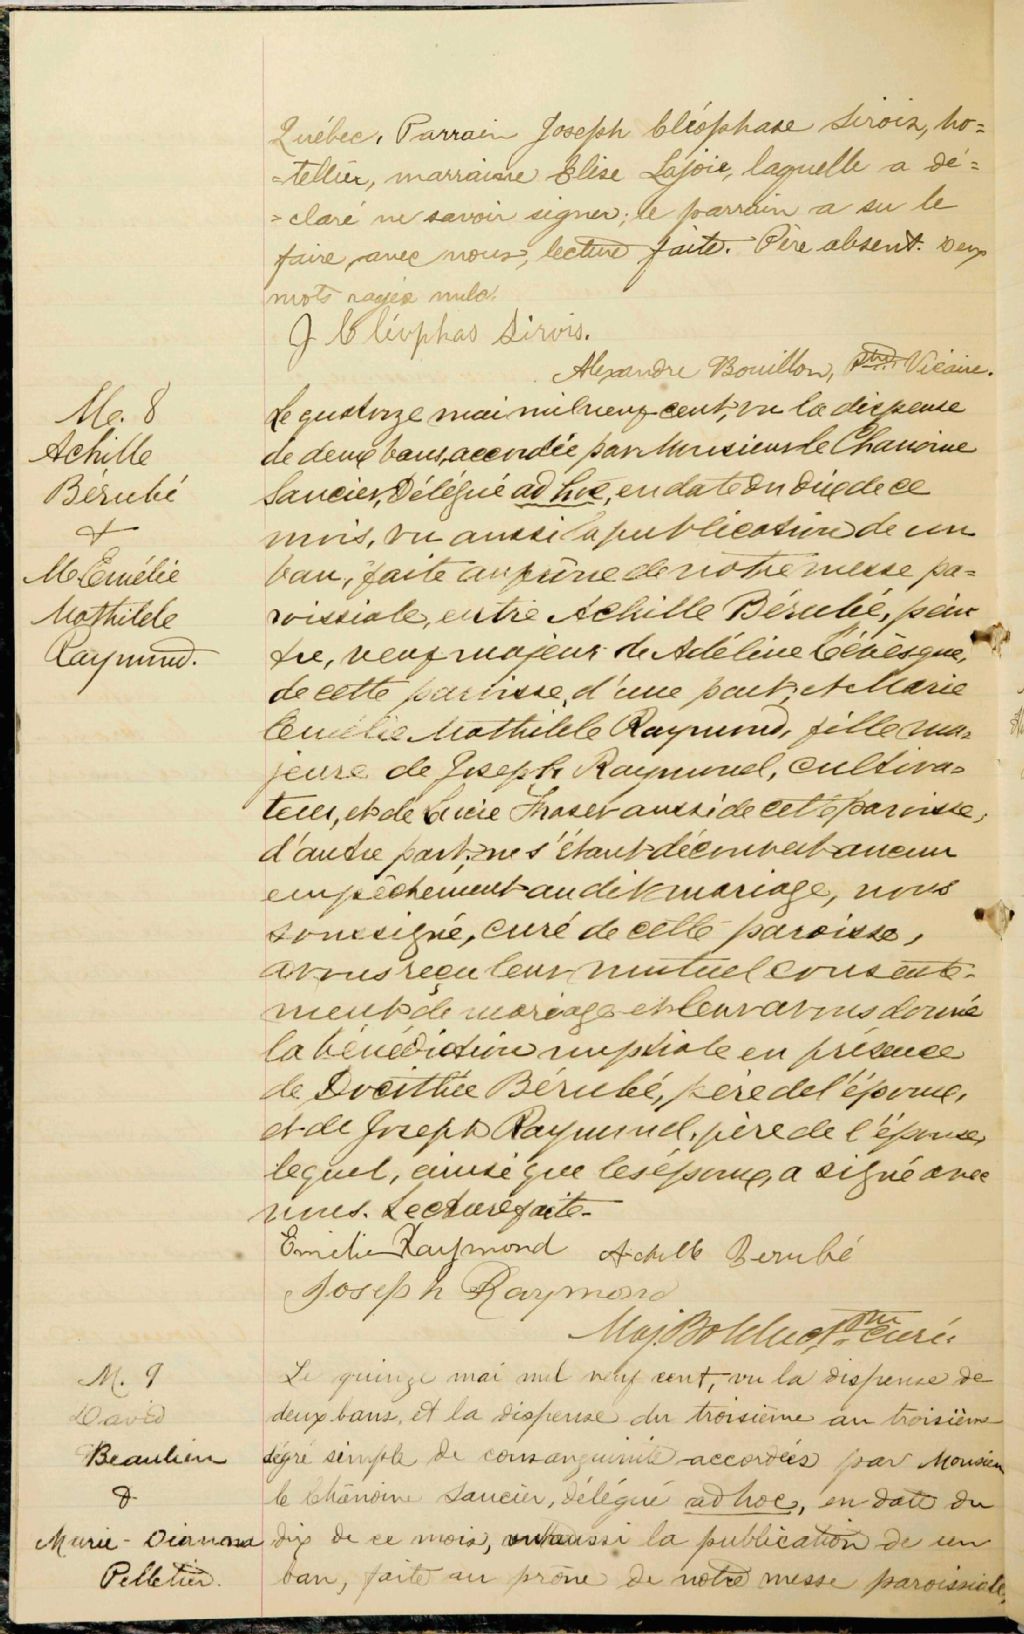 Québec. Parrain Joseph Cléophase Sirois, ho=
=tellier, marraine Elise Lajoie, laquelle a dé=
=claré ne savoir signer; le parrain a su le
faire avec nous, lecture faite. Père absent. Deux
mots rayés nuls.
J Cléophas Sirois.
Alexandre Bouillon, Ptre, Vicaire.
M. 8
Achille
Bérubé
&
M. Emélie
Mathilde
Raymond.
Le quatorze mai mil neuf cent, vu la dispense
de deux bans, accordée par Monsieur le Chanoine
Saucier, Délégué ad hoc, en date du dix de ce
mois, vu aussi la publication de un
ban, faite au prône de notre messe pa=
roissiale, entre Achille Bérubé, pein
tre, veuf majeur de Adéline Lévèsque,
de cette paroisse, d'une part; et Marie
Emélie Mathilde Raymond, fille ma=
jeure de Joseph Raymond, cultiva=
teur, et de Lucie Fraser aussi de cette paroisse,
d'autre part; ne s'étant découvert aucun
empêchement au dit mariage, nous
soussigné, curé de cette paroisse,
avons reçu leur mutuel consente-
ment de mariage et leur avons donné
la bénédiction nuptiale en présence
de Docithée Bérubé, père de l'époux,
et de Joseph Raymond, père de l'épouse,
lequel, ainsi que les époux, a signé avec
nous. Lecture faite.
Emélie Raymond Achille Berubé
Joseph Raymond
Maj. Bolduc Ptre curé
M. 9
David
Beaulieu
&
Marie-
Pelletier.
Le quinze mai mil neuf cent, vu la dispense de
deux bans, et la dispense du troisième au troisième
dégré simple de consanguinité accordées par Monsieur
le Chanoine Saucier, délégué ad hoc, en date du
dix de ce mois, vu aussi la publication de un
ban, faite au prône de notre messe paroissiale,